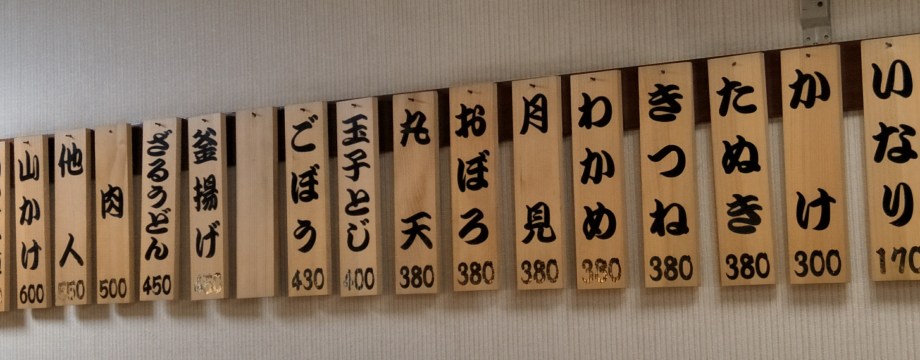 いなり 170
かけ 300
たぬき 380
きつね 380
わかめ 380
月見 380
おぼろ 380
丸天 380
玉子とじ 400
ごぼう 430
釜揚げ
ざるうどん 450
肉 500
他人 550
山かけ 600